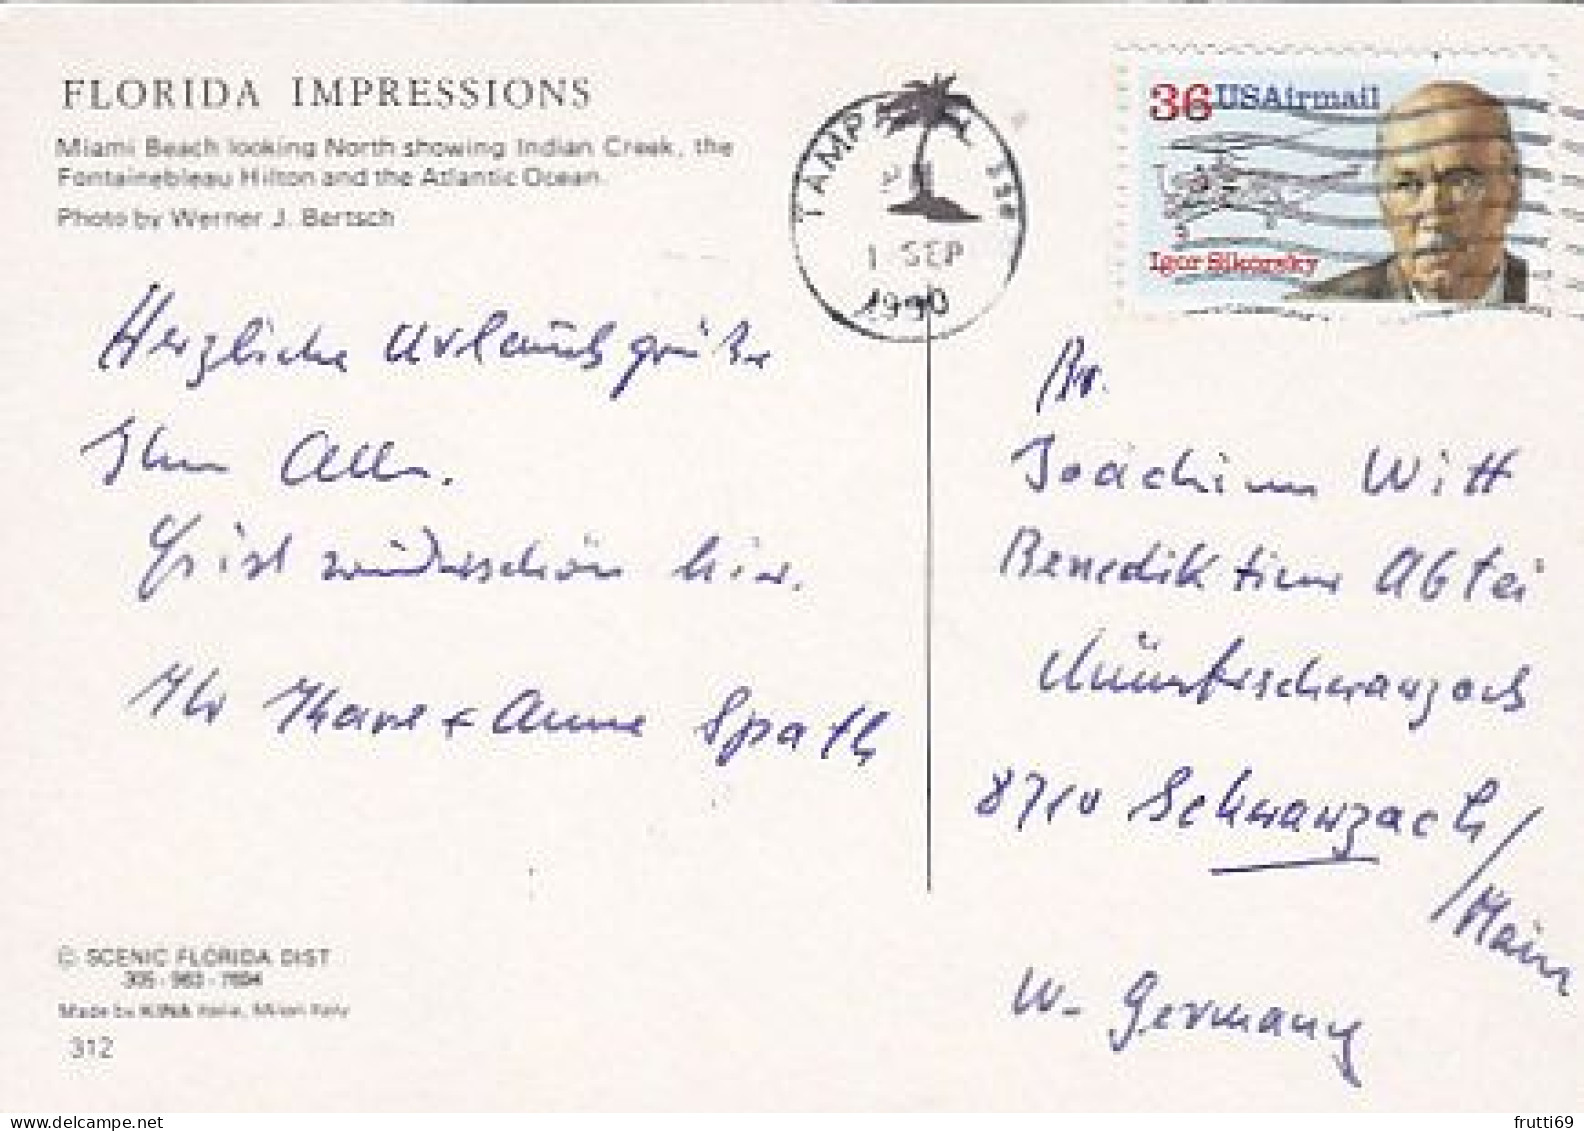 FLORIDA IMPRESSIONS
Miami Beach looking North showing Indian Creek, the
Fontainebleau Hilton and the Atlantic Ocean.
Photo by Werner J. Bertsch
TAMPA FL 336
1 SEP
1990
36 USAirmail
Igor Sikorsky
Herzliche Urlaubsgrüße
Ihnen Allen.
Es ist wunderschön hier.
Ihr Anne Späth
Br.
Joachim Witt
Benediktiner Abtei
Münsterschwarzach
8710 Schwarzach/
Main
W-Germany
© SCENIC FLORIDA DIST
305-963-7694
Made by KINA Italia, Milan Italy
312
frutti69